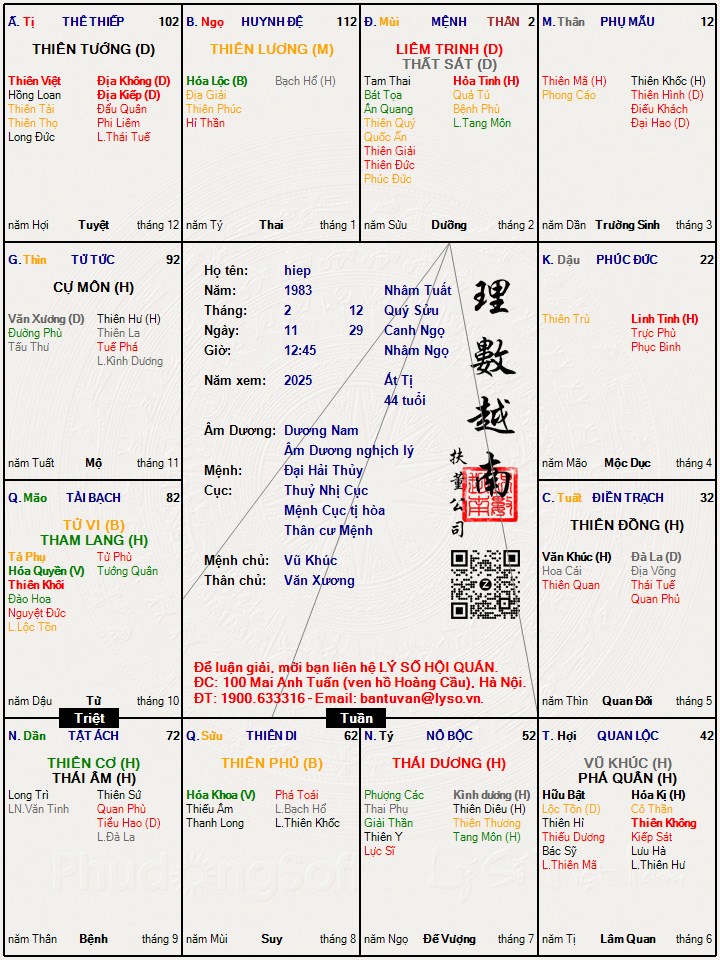 Ấ. Tị THÊ THIẾP 102
THIÊN TƯỚNG (D)
Thiên Việt Địa Không (D)
Hồng Loan Địa Kiếp (D)
Thiên Tài Đẩu Quân
Thiên Thọ Phi Liêm
Long Đức L.Thái Tuế
năm Hợi Tuyệt tháng 12
B. Ngọ HUYNH ĐỆ 112
THIÊN LƯƠNG (M)
Hóa Lộc (B) Bạch Hổ (H)
Địa Giải
Thiên Phúc
Hỉ Thần
năm Tý Thai tháng 1
Đ. Mùi MỆNH THÂN 2
LIÊM TRINH (D)
THẤT SÁT (D)
Tam Thai Hỏa Tinh (H)
Bát Tọa Quả Tú
Ân Quang Bệnh Phù
Thiên Quý L.Tang Môn
Quốc Ấn
Thiên Giải
Thiên Đức
Phúc Đức
năm Sửu Dưỡng tháng 2
M. Thân PHỤ MẪU 12
Thiên Mã (H) Thiên Khốc (H)
Phong Cáo Thiên Hình (D)
Điếu Khách
Đại Hao (D)
năm Dần Trường Sinh tháng 3
G. Thìn TỬ TỨC 92
CỰ MÔN (H)
Văn Xương (D) Thiên Hư (H)
Đường Phù Thiên La
Tấu Thư Tuế Phá
L.Kình Dương
năm Tuất Mộ tháng 11
Họ tên: hiep
Năm: 1983 Nhâm Tuất
Tháng: 2 12 Quý Sửu
Ngày: 11 29 Canh Ngọ
Giờ: 12:45 Nhâm Ngọ
Năm xem: 2025 Ất Tị
44 tuổi
Âm Dương: Dương Nam
Âm Dương nghịch lý
Mệnh: Đại Hải Thủy
Cục: Thuỷ Nhị Cục
Mệnh Cục tị hòa
Thân cư Mệnh
Mệnh chủ: Vũ Khúc
Thân chủ: Văn Xương
理數越南
扶董公司
Để luận giải, mời bạn liên hệ LÝ SỐ HỘI QUÁN.
ĐC: 100 Mai Anh Tuấn (ven hồ Hoàng Cầu), Hà Nội.
ĐT: 1900.633316 - Email: bantuvan@lyso.vn.
K. Dậu PHÚC ĐỨC 22
Thiên Trù Linh Tinh (H)
Trực Phù
Phục Binh
năm Mão Mộc Dục tháng 4
Q. Mão TÀI BẠCH 82
TỬ VI (B)
THAM LANG (H)
Tả Phụ Tử Phù
Hóa Quyền (V) Tướng Quân
Thiên Khôi
Đào Hoa
Nguyệt Đức
L.Lộc Tồn
năm Dậu Tử tháng 10
C. Tuất ĐIỀN TRẠCH 32
THIÊN ĐỒNG (H)
Văn Khúc (H) Đà La (D)
Hoa Cái Địa Võng
Thiên Quan Thái Tuế
Quan Phủ
năm Thìn Quan Đới tháng 5
Triệt
Tuần
N. Dần TẬT ÁCH 72
THIÊN CƠ (H)
THÁI ÂM (H)
Long Trì Thiên Sứ
LN.Văn Tinh Quan Phù
Tiểu Hao (D)
L.Đà La
năm Thân Bệnh tháng 9
Q. Sửu THIÊN DI 62
THIÊN PHỦ (B)
Hóa Khoa (V) Phá Toái
Thiếu Âm L.Bạch Hổ
Thanh Long L.Thiên Khốc
năm Mùi Suy tháng 8
N. Tý NÔ BỘC 52
THÁI DƯƠNG (H)
Phượng Các Kình dương (H)
Thai Phụ Thiên Diêu (H)
Giải Thần Thiên Thương
Thiên Y Tang Môn (H)
Lực Sĩ
năm Ngọ Đế Vượng tháng 7
T. Hợi QUAN LỘC 42
VŨ KHÚC (H)
PHÁ QUÂN (H)
Hữu Bật Hóa Kị (H)
Lộc Tồn (D) Cô Thần
Thiên Hỉ Thiên Không
Thiếu Dương Kiếp Sát
Bác Sỹ Lưu Hà
L.Thiên Mã L.Thiên Hư
năm Tị Lâm Quan tháng 6